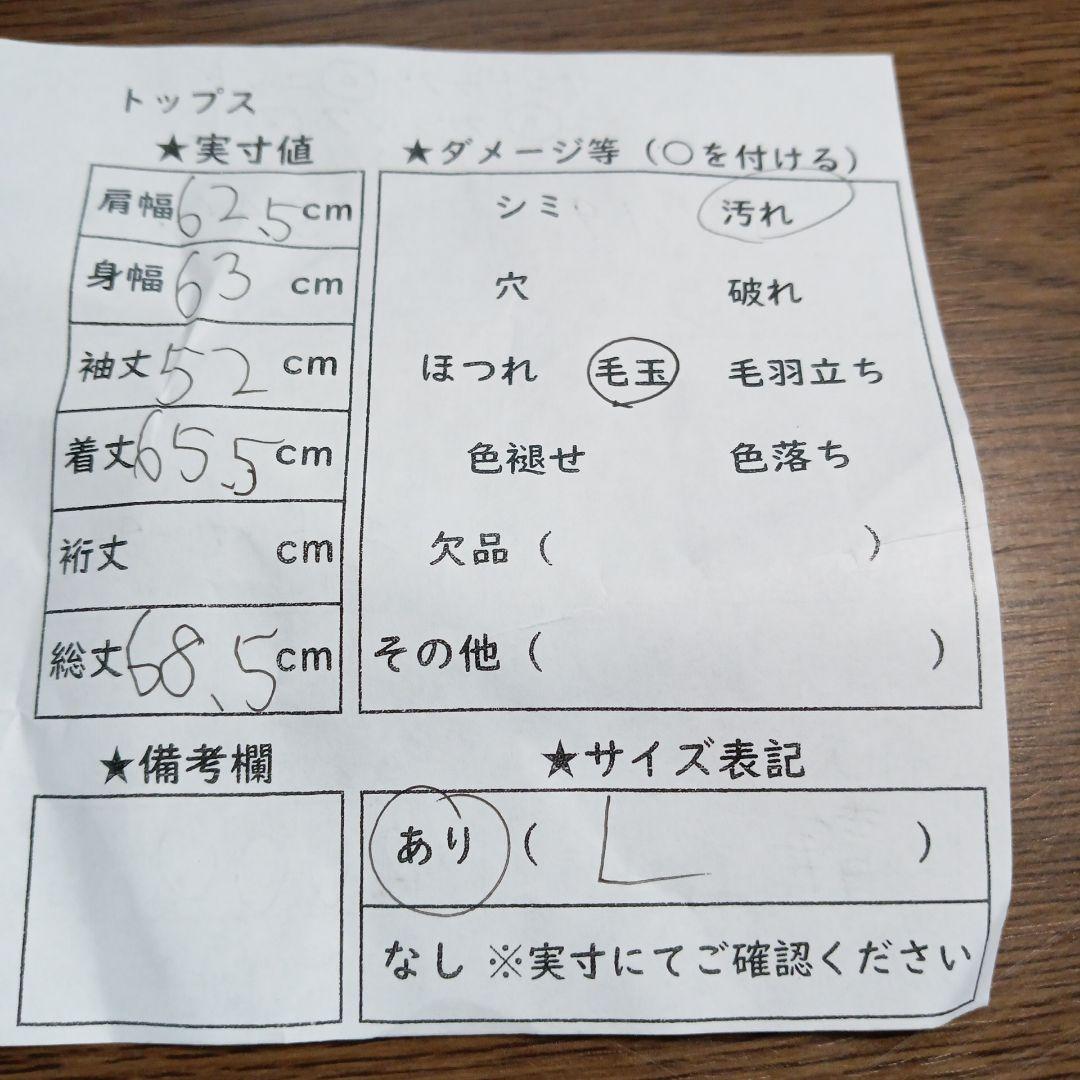 トップス
★実寸値
肩幅 62.5 cm
身幅 63 cm
袖丈 52 cm
着丈 65.5 cm
裄丈 cm
総丈 68.5 cm
★ダメージ等（○を付ける）
シミ 汚れ
穴 破れ
ほつれ 毛玉 毛羽立ち
色褪せ 色落ち
欠品（ ）
その他（ ）
★備考欄
★サイズ表記
あり（ L ）
なし ※実寸にてご確認ください